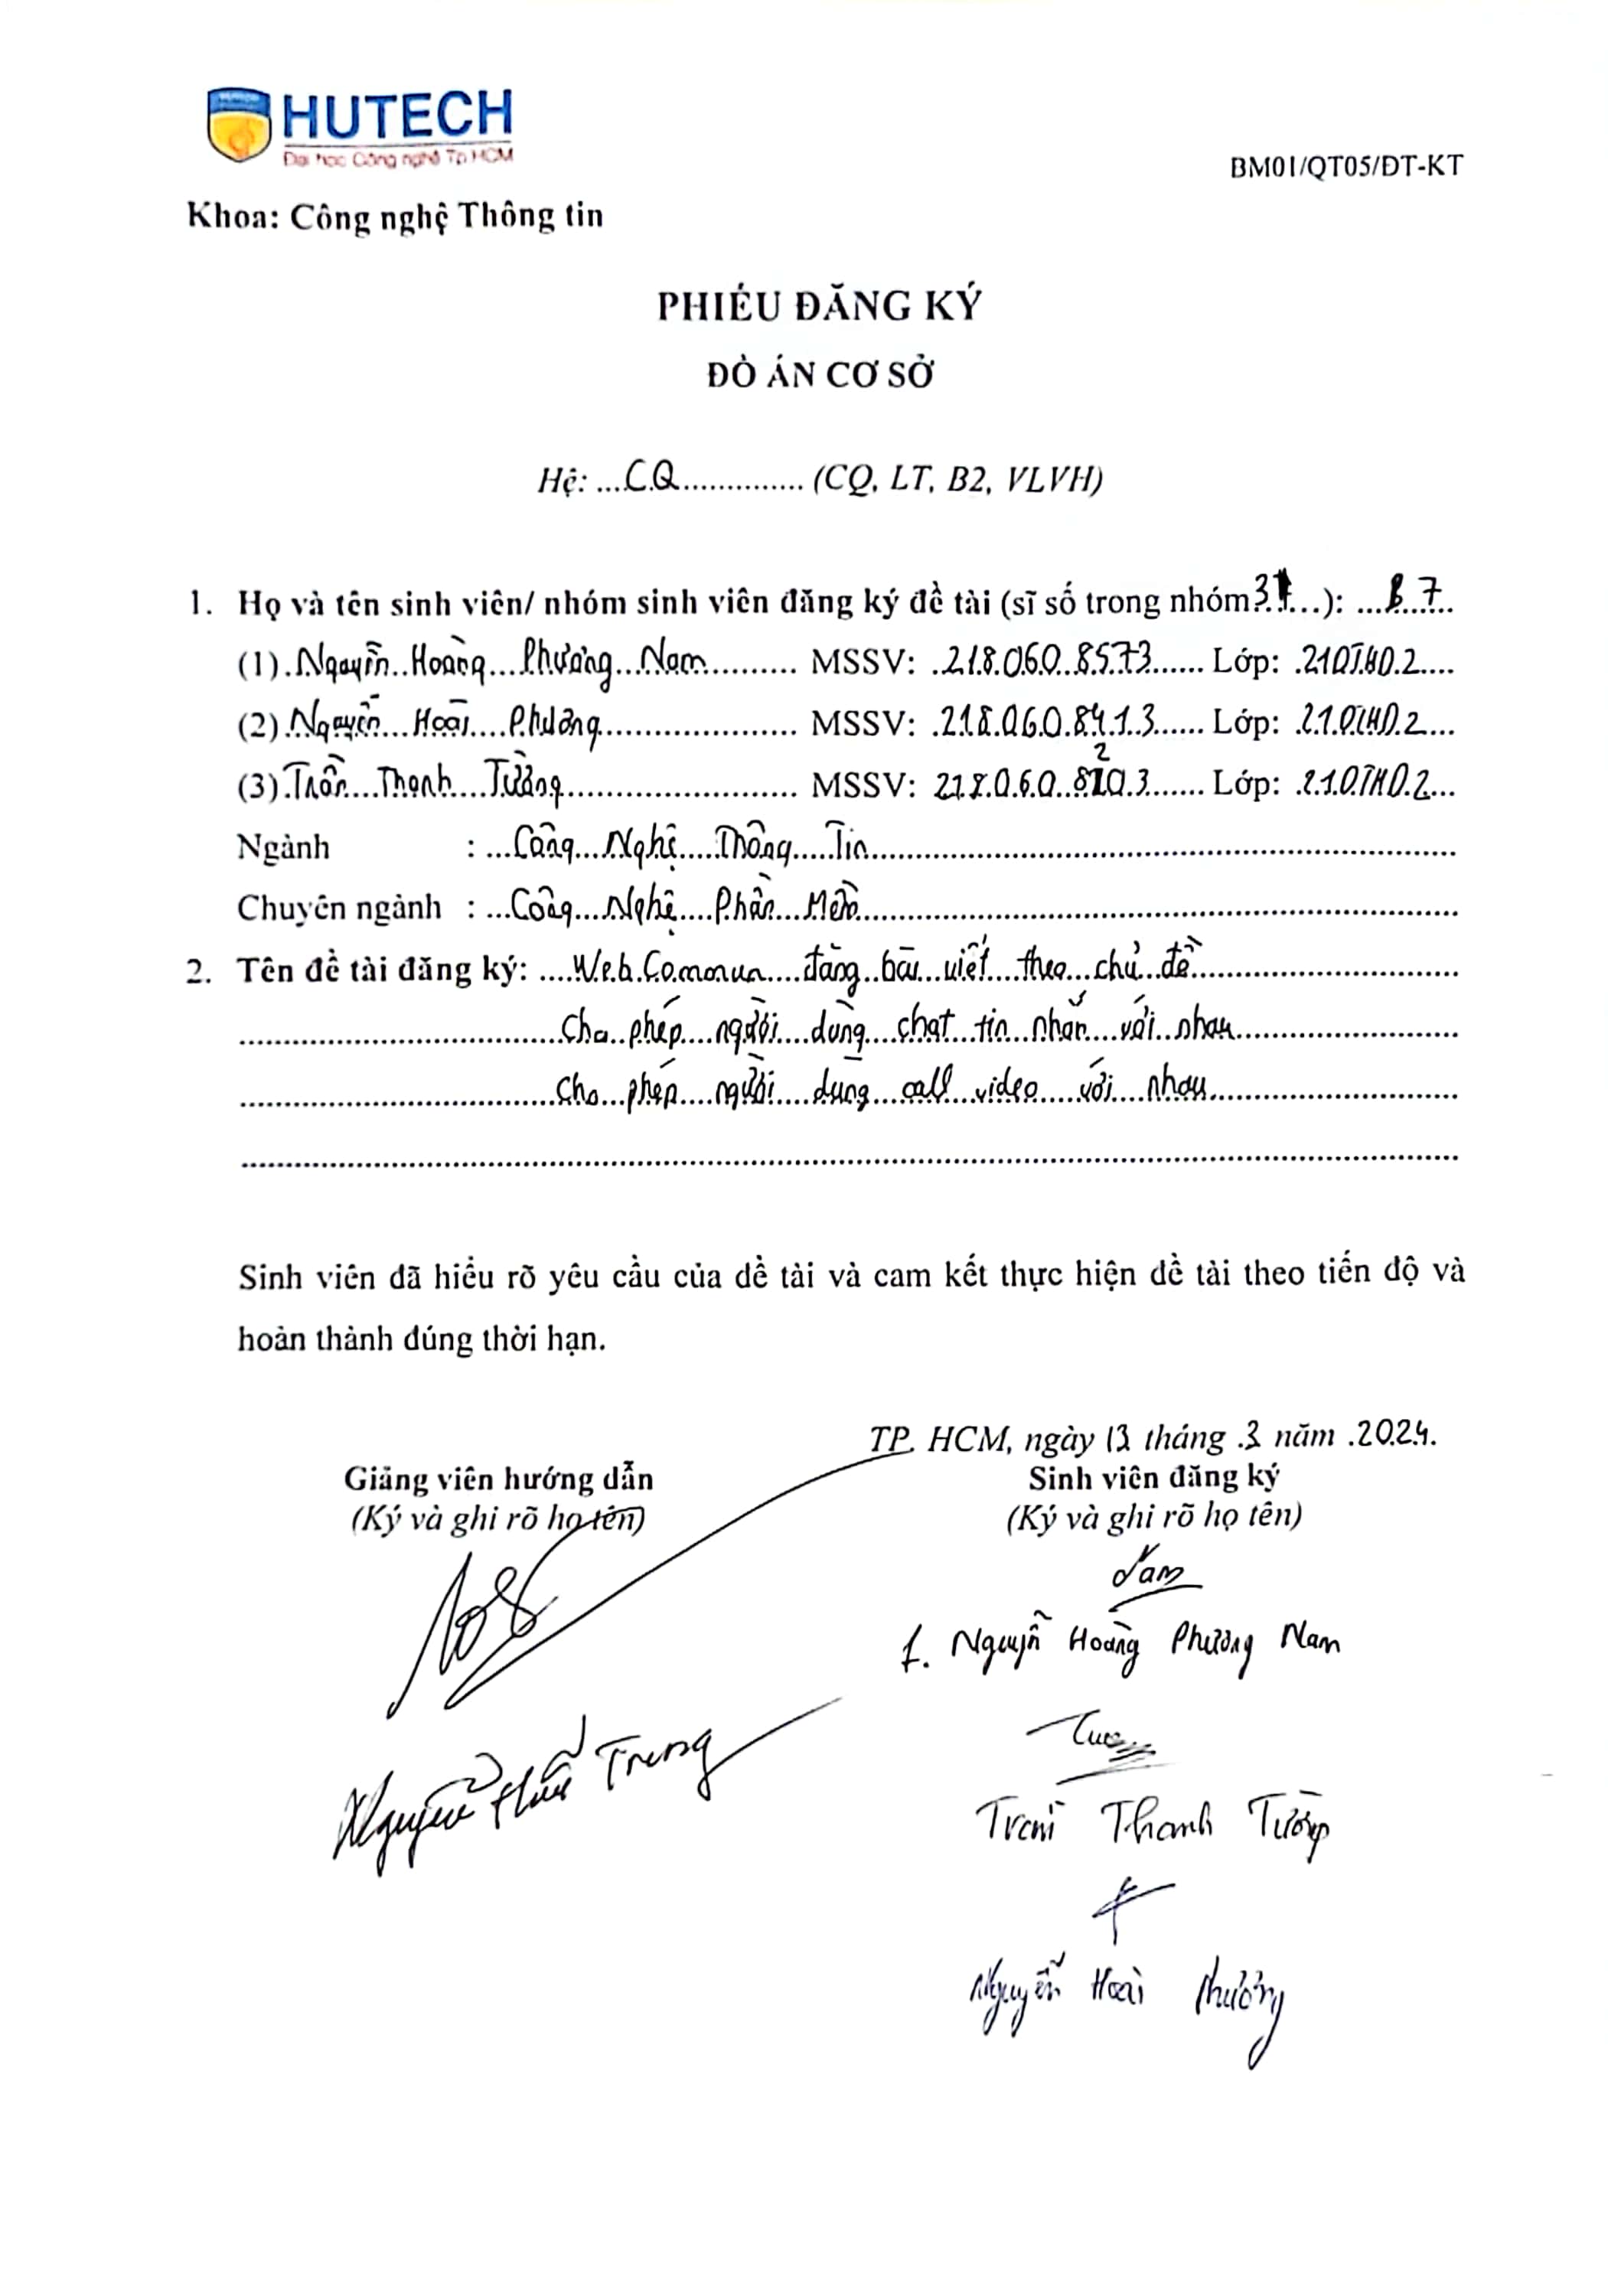 HUTECH
Đại học Công nghệ Tp.HCM
BM01/QT05/ĐT-KT
Khoa: Công nghệ Thông tin
PHIẾU ĐĂNG KÝ
ĐỒ ÁN CƠ SỞ
Hệ: ...CQ.............. (CQ, LT, B2, VLVH)
1. Họ và tên sinh viên/ nhóm sinh viên đăng ký đề tài (sĩ số trong nhóm 3...): ... 7
(1) Nguyễn Hoàng Phương Nam MSSV: 2180608573 Lớp: 21DTHD2
(2) Nguyễn Hoài Phương MSSV: 2180608413 Lớp: 21DTHD2
(3) Trần Thanh Tường MSSV: 2180608203 Lớp: 21DTHD2
Ngành : Công Nghệ Thông Tin
Chuyên ngành : Công Nghệ Phần Mềm
2. Tên đề tài đăng ký: Web Commun đăng bài viết theo chủ đề
Cho phép người dùng chat tin nhắn với nhau
Cho phép người dùng call video với nhau
Sinh viên đã hiểu rõ yêu cầu của đề tài và cam kết thực hiện đề tài theo tiến độ và
hoàn thành đúng thời hạn.
TP. HCM, ngày 13 tháng 3 năm 2024.
Giảng viên hướng dẫn
(Ký và ghi rõ họ tên)
Sinh viên đăng ký
(Ký và ghi rõ họ tên)
Nam
1. Nguyễn Hoàng Phương Nam
Trần Thanh Tường
Nguyễn Hữu Trung
Nguyễn Hoài Phương